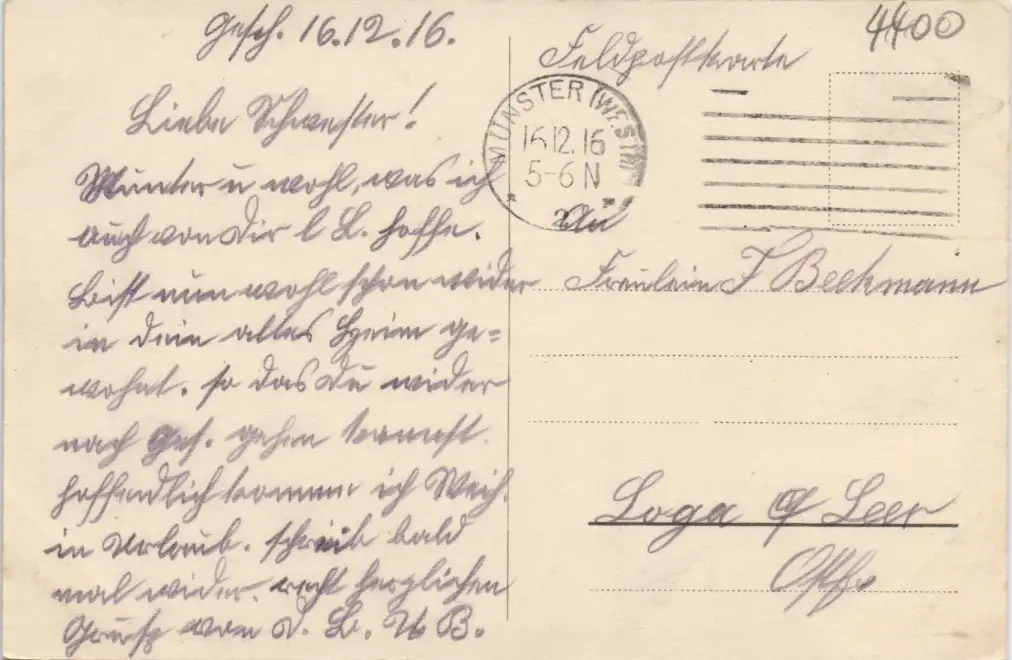 Gesch. 16.12.16.
Liebe Schwester!
Munter u wohl, was ich
auch von Dir l B. hoffe.
Bist nun wohl schon wider
in dein altes Heim ge=
wohnt. so das Du wider
nach gehen kannst.
hoffendlich komme ich Weih.
in Urlaub. schreib bald
mal wider. recht herzlichen
Gruß von d. Br. B.
4400
Feldpostkarte
MÜNSTER (WESTF
16.12.16
5-6 N
* 2 *
An
Fräulein F Beekmann
Loga b/ Leer
Ostfr.